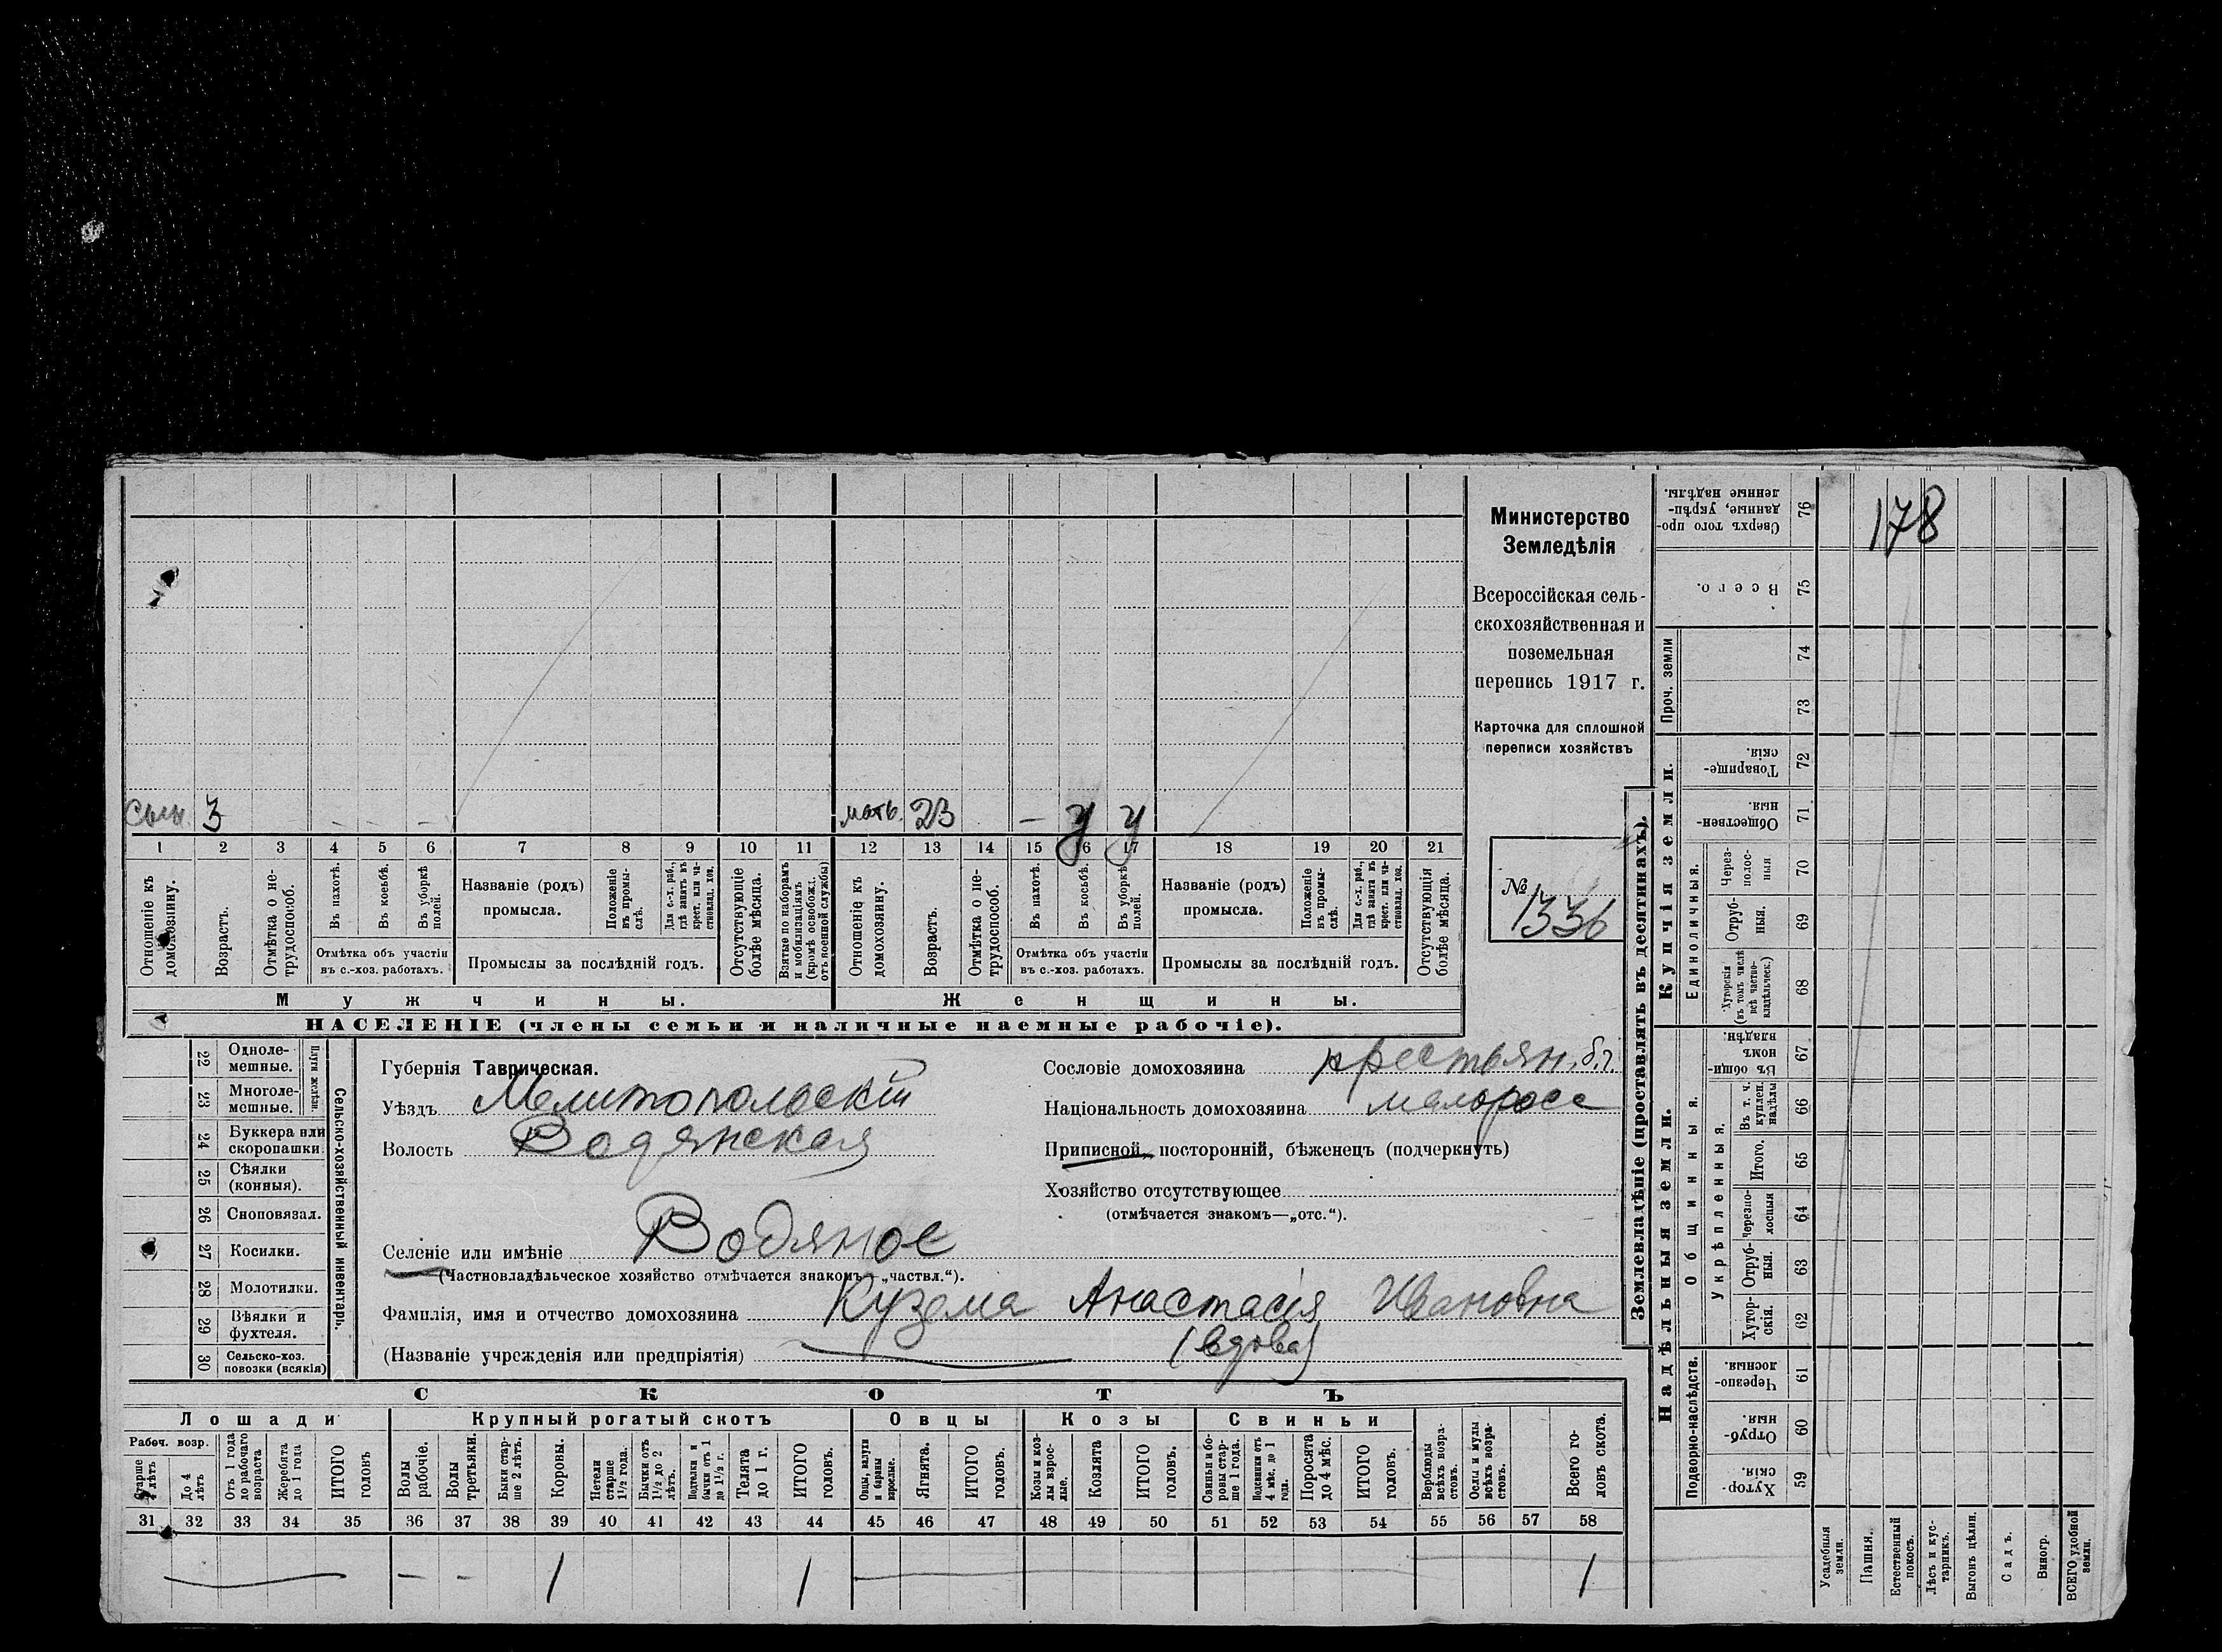 178
Министерство
Земледѣлія
Всероссійская сель-
скохозяйственная и
поземельная
перепись 1917 г.
Карточка для сплошной
переписи хозяйствъ
№ 1336
сынъ 3 - - - мать 23 - У У
1 2 3 4 5 6 7 8 9 10 11 12 13 14 15 16 17 18 19 20 21
Отношеніе къ домохозяину.
Возрастъ.
Отмѣтка о не-трудоспособ.
Въ пахотѣ.
Въ косьбѣ.
Въ уборкѣ полей.
Отмѣтка объ участіи въ с.-хоз. работахъ.
Названіе (родъ) промысла.
Положеніе въ промы-слѣ.
Для с.-х. раб., гдѣ занятъ въ крест. или ча-стновлад. хоз.
Промыслы за послѣдній годъ.
Отсутствующіе болѣе мѣсяца.
Взятые по наборамъ и мобилизаціямъ (кромѣ освобожд. отъ военной службы)
Отношеніе къ домохозяину.
Возрастъ.
Отмѣтка о не-трудоспособ.
Въ пахотѣ.
Въ косьбѣ.
Въ уборкѣ полей.
Отмѣтка объ участіи въ с.-хоз. работахъ.
Названіе (родъ) промысла.
Положеніе въ промы-слѣ.
Для с.-х. раб., гдѣ занята въ крест. или ча-стновлад. хоз.
Промыслы за послѣдній годъ.
Отсутствующія болѣе мѣсяца.
Мужчины. Женщины.
НАСЕЛЕНІЕ (члены семьи и наличные наемные рабочіе).
Сельско-хозяйственный инвентарь.
Плуги желѣзн.
22 Одноле-мешные.
23 Многоле-мешные.
24 Буккера или скоропашки.
25 Сѣялки (конныя).
26 Сноповязал.
27 Косилки.
28 Молотилки.
29 Вѣялки и фухтеля.
30 Сельско-хоз. повозки (всякія)
Губернія Таврическая.
Уѣздъ Мелитопольскій
Волость Водянская
Селеніе или имѣніе Водяное
(Частновладѣльческое хозяйство отмѣчается знакомъ—„частвл.“).
Фамилія, имя и отчество домохозяина Кузема Анастасія Ивановна
(Названіе учрежденія или предпріятія) (вдова)
Сословіе домохозяина крестьян. б.г.
Національность домохозяина малоросс
Приписной, посторонній, бѣженецъ (подчеркнуть)
Хозяйство отсутствующее
(отмѣчается знакомъ—„отс.“).
СКОТЪ
Лошади Крупный рогатый скотъ Овцы Козы Свиньи
Рабоч. возр.
Старше 4 лѣтъ
До 4 лѣтъ
Отъ 1 года до рабочаго возраста
Жеребята до 1 года
ИТОГО головъ
Волы рабочіе.
Волы третьяки.
Быки стар-ше 2 лѣтъ.
Коровы.
Нетели старше 1½ года.
Бычки отъ 1½ до 2 лѣтъ.
Подтелки и бычки отъ 1 до 1½ г.
Телята до 1 г.
ИТОГО головъ.
Овцы, валухи и бараны взрослые.
Ягнята.
ИТОГО головъ.
Козы и коз-лы взрос-лые.
Козлята
ИТОГО головъ.
Свиньи и бо-ровы стар-ше 1 года.
Подсвинки отъ 4 мѣс. до 1 года.
Поросята до 4 мѣс.
ИТОГО головъ.
Верблюды всѣхъ возра-стовъ.
Ослы и мулы всѣхъ возра-стовъ.
Всего го-ловъ скота.
31 32 33 34 35 36 37 38 39 40 41 42 43 44 45 46 47 48 49 50 51 52 53 54 55 56 57 58
- - 1 1 1
Землевладѣніе (проставлять въ десятинахъ).
Надѣльныя земли. Купчія земли. Проч. земли
Подворно-наслѣдств.
Общинныя.
Укрѣпленныя.
Единоличныя.
59 Хутор-скія.
60 Отруб-ныя.
61 Черезпо-лосныя.
62 Хутор-скія.
63 Отруб-ныя.
64 Черезпо-лосныя
65 Итого.
66 Въ т. ч. куплен. надѣлы
67 Въ общи-номъ владѣн.
68 Хуторскія (въ томъ числѣ всѣ частно-владѣльческ.)
69 Отруб-ныя.
70 Через-полос-ныя
71 Обществен-ныя.
72 Товарище-скія.
73
74
75 Всего.
76 Сверхъ того про-данные, укрѣп-ленные надѣлы.
Усадебныя земли.
Пашня.
Естественный покосъ.
Лѣсъ и кус-тарникъ.
Выгонъ цѣлин.
Садъ.
Виногр.
ВСЕГО удобной земли.